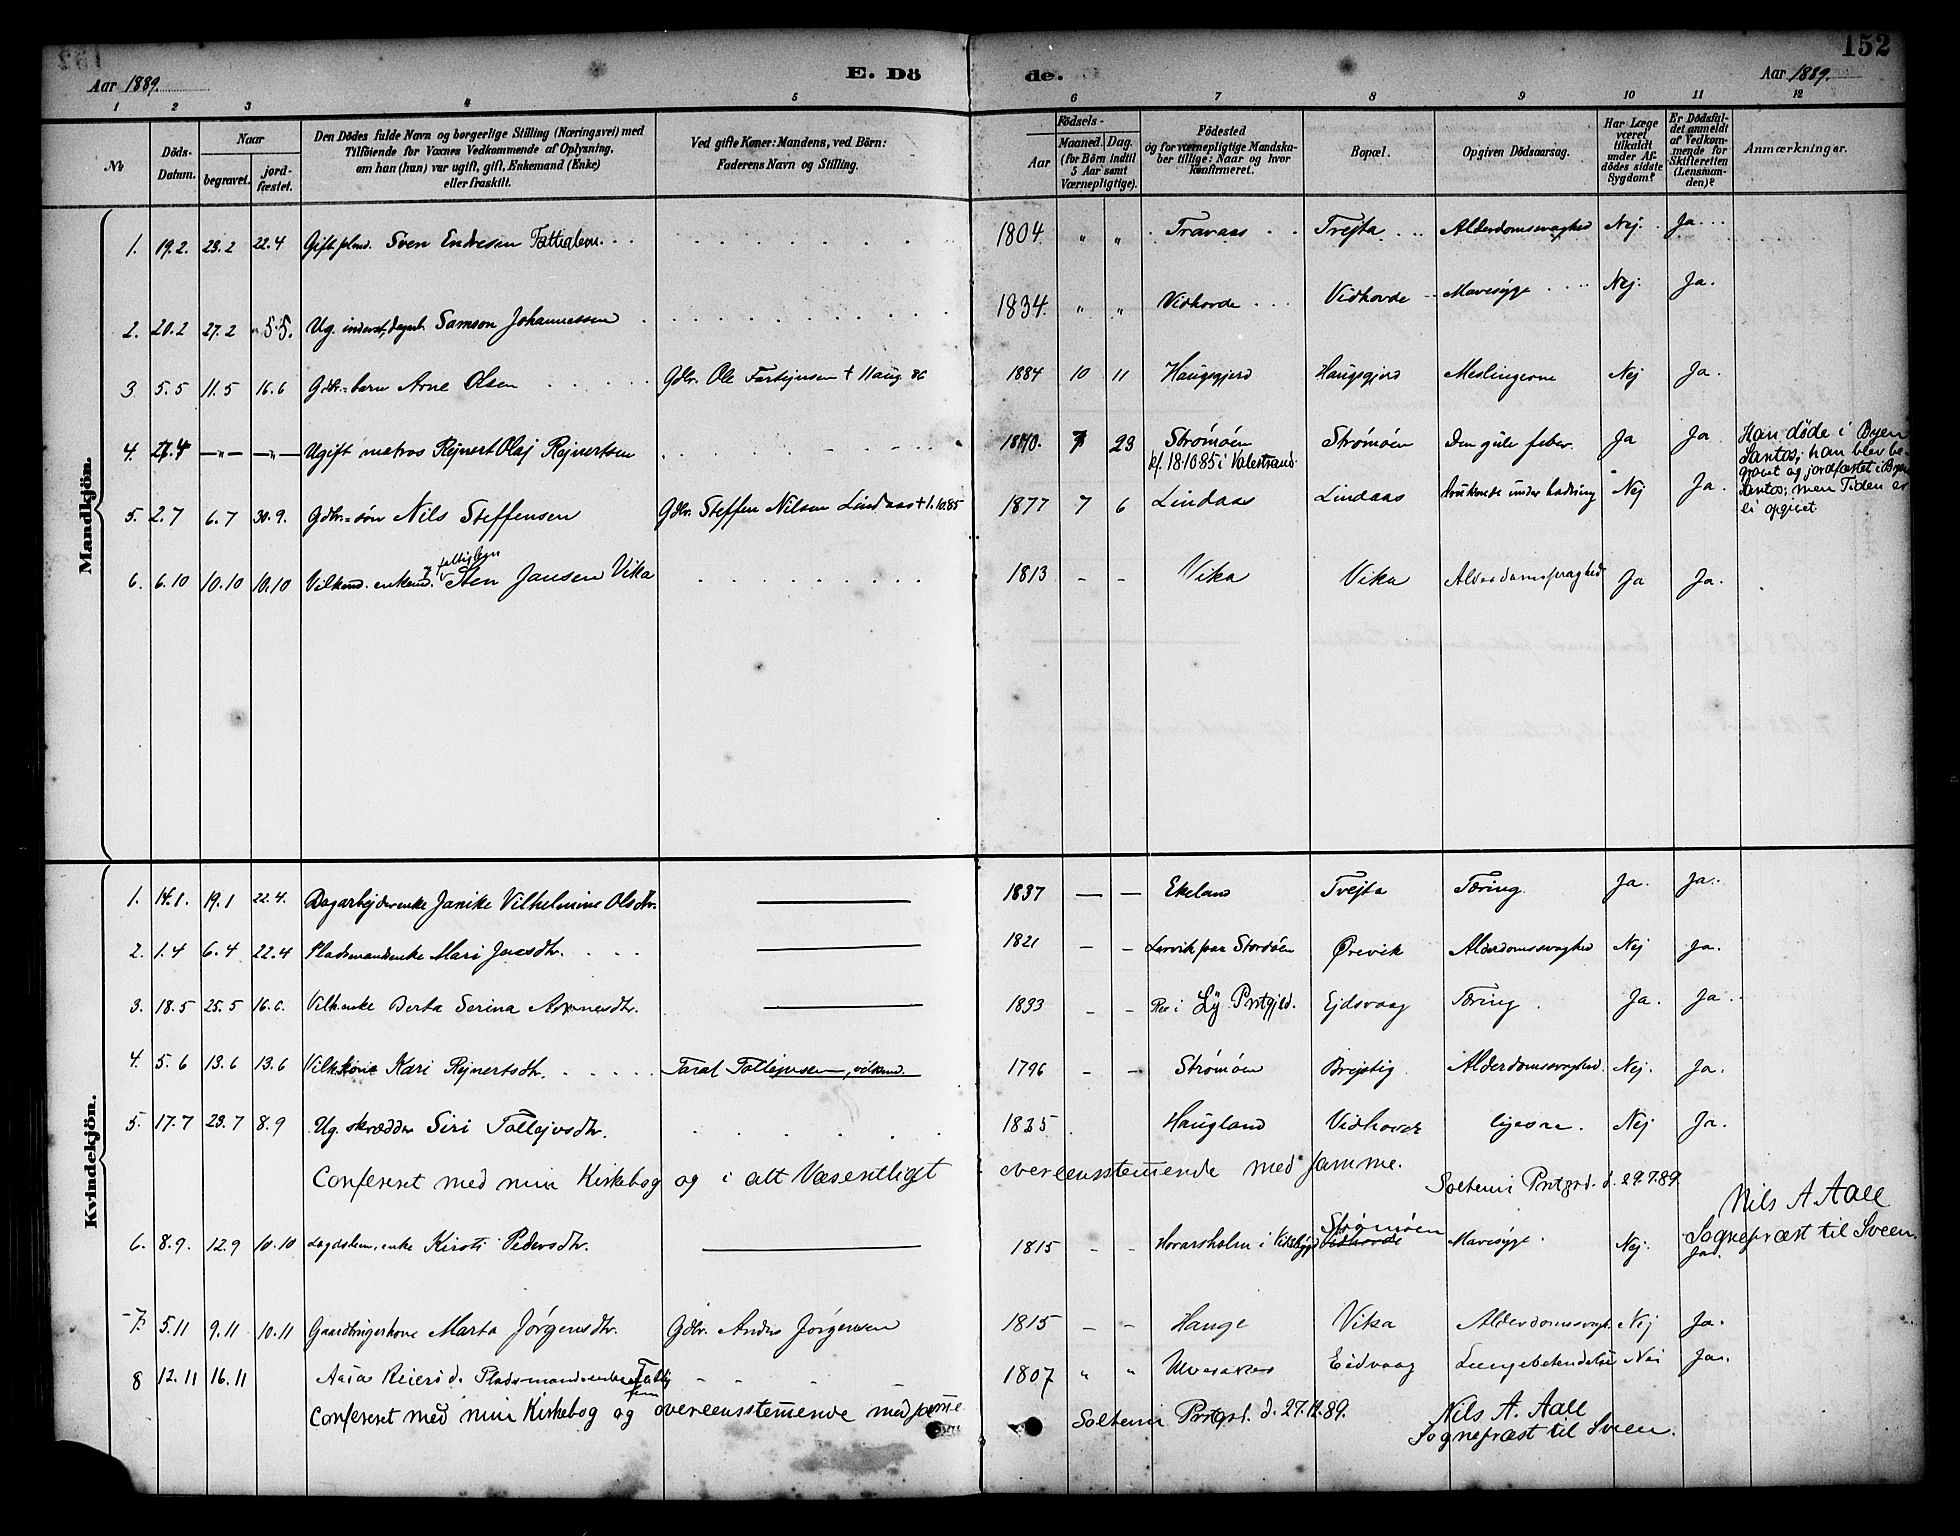 152
Aar 1889. E. Dö de. Aar 1889.
1 2 3 4 5 6 7 8 9 10 11 12
Nr. Döds-Datum. Naar begravet. jordfæstet. Den Dödes fulde Navn og borgerlige Stilling (Næringsvei) med Tilföiende for Voxnes Vedkommende af Oplysning, om han (hun) var ugift, gift, Enkemand (Enke) eller fraskilt. Ved gifte Koner: Mandens, ved Börn: Faderens Navn og Stilling. Födsels- Aar Maaned. Dag. (for Börn indtil 5 Aar samt Værnepligtige). Födested og for værnepligtige Mandskaber tillige: Naar og hvor konfirmeret. Bopæl. Opgiven Dödsaarsag. Har Læge været tilkaldt under Afdödes sidste Sygdom? Er Dödsfaldet anmeldt af Vedkommende for Skifteretten (Lensmanden)? Anmærkninger.
Mandkjön.
1. 19.2. 23.2 22.4 Gift Sven Endresen Fattiglem. 1804 " " Travaas Trejta Alderdomssvaghed Nej. Ja
2. 20.2 27.2 5.5. Ug. inderst, dagarb. Samson Johannessen 1834. " " Vidhovde Vidhovde Mavesyge Nej. Ja.
3 5.5 11.5 16.6 Gdbr.=barn Arne Olsen Gdbr. Ole Torkejnsen + 11 aug. 86 1884 10 11 Haugsgjerd Haugsgjerd Meslingerne Nej Ja.
4. 27.4 —"— —"— Ugift matros Rejnert Olaj Rejnertsen 1870. 7 23 Strömöen kf. 18.10 85 i Valestrand Strömöen Den gule feber. Ja Ja Han döde i Byen
Santos; han blev be-
gravet og jordfæstet i Byen
Santos; men Tiden er
ei opgivet
5. 2.7 6.7 30.9. Gdbr=sön Nils Steffensen Gdbr. Steffen Nilsen Lindaas + 1.10.85 1877 7 6 Lindaas Lindaas Druknede under badning Nej Ja.
6. 6.10 10.10 10.10 Vilkmd. enkemd. & fattiglem Sten Jansen Vika 1813 – – Vika Vika Alderdomssvaghed Ja Ja.
Kvindekjön.
1. 14.1. 19.1 22.4. Dagarbejderenke Janike Vilhelmine Olsdtr. 1837 — — Ekeland Tvejta Tæring. Ja. Ja.
2. 1.4 6.4 22.4 Pladsmandsenke Mari Jensdtr. 1821 – – Lervik paa Stordöen Örevik Alderdomssvaghed Nej Ja.
3. 18.5 25.5 16.6. Vilk.enke Berta Serina Arnesdtr. 1833 – – i Ly Prstgjld. Ejdsvaag Tæring. Ja. Ja.
4. 5.6 13.6 13.6 Vilk.kone Kari Rejnertsdtr. Taral Tollejvsen, vilkmd. 1796 – – Strömöen Brejstig Alderdomssvaghed. Nej. Ja
5. 17.7 23.7 8.9 Ug. skrædder Siri Tollejvsdtr. 1835 Haugland Vidhovde Nej Ja.
Confereret med min Kirkebog og i alt Væsentligt overeensstemende med samme. Soltemi Prstgrd. d. 29.7.89. Nils A Aall
Sognepræst til Sveen.
6. 8.9. 12.9 10.10 Lægdslem, enke Kirsti Pedersdtr. 1815 – – i Strömöen Vidhovde Mavesyge. Nej. Ja.
7. 5.11 9.11 10.11 Gaardbrugerkone Marta Jörgensdtr. Gdbr. Anders Jörgensen 1815 – – Hauge Vika Alderdomssvagh. Nej Ja.
8 12.11 16.11 Aasa Reiersd. Pladsmandsenke Fattiglem 1807 " " Eidvaag Lungebetændelse Nei Ja.
Confereret med min Kirkebog og overeensstemende med samme Soltemi Prstgrd. d. 27.12.89. Nils A. Aall
Sognepræst til Sveen.